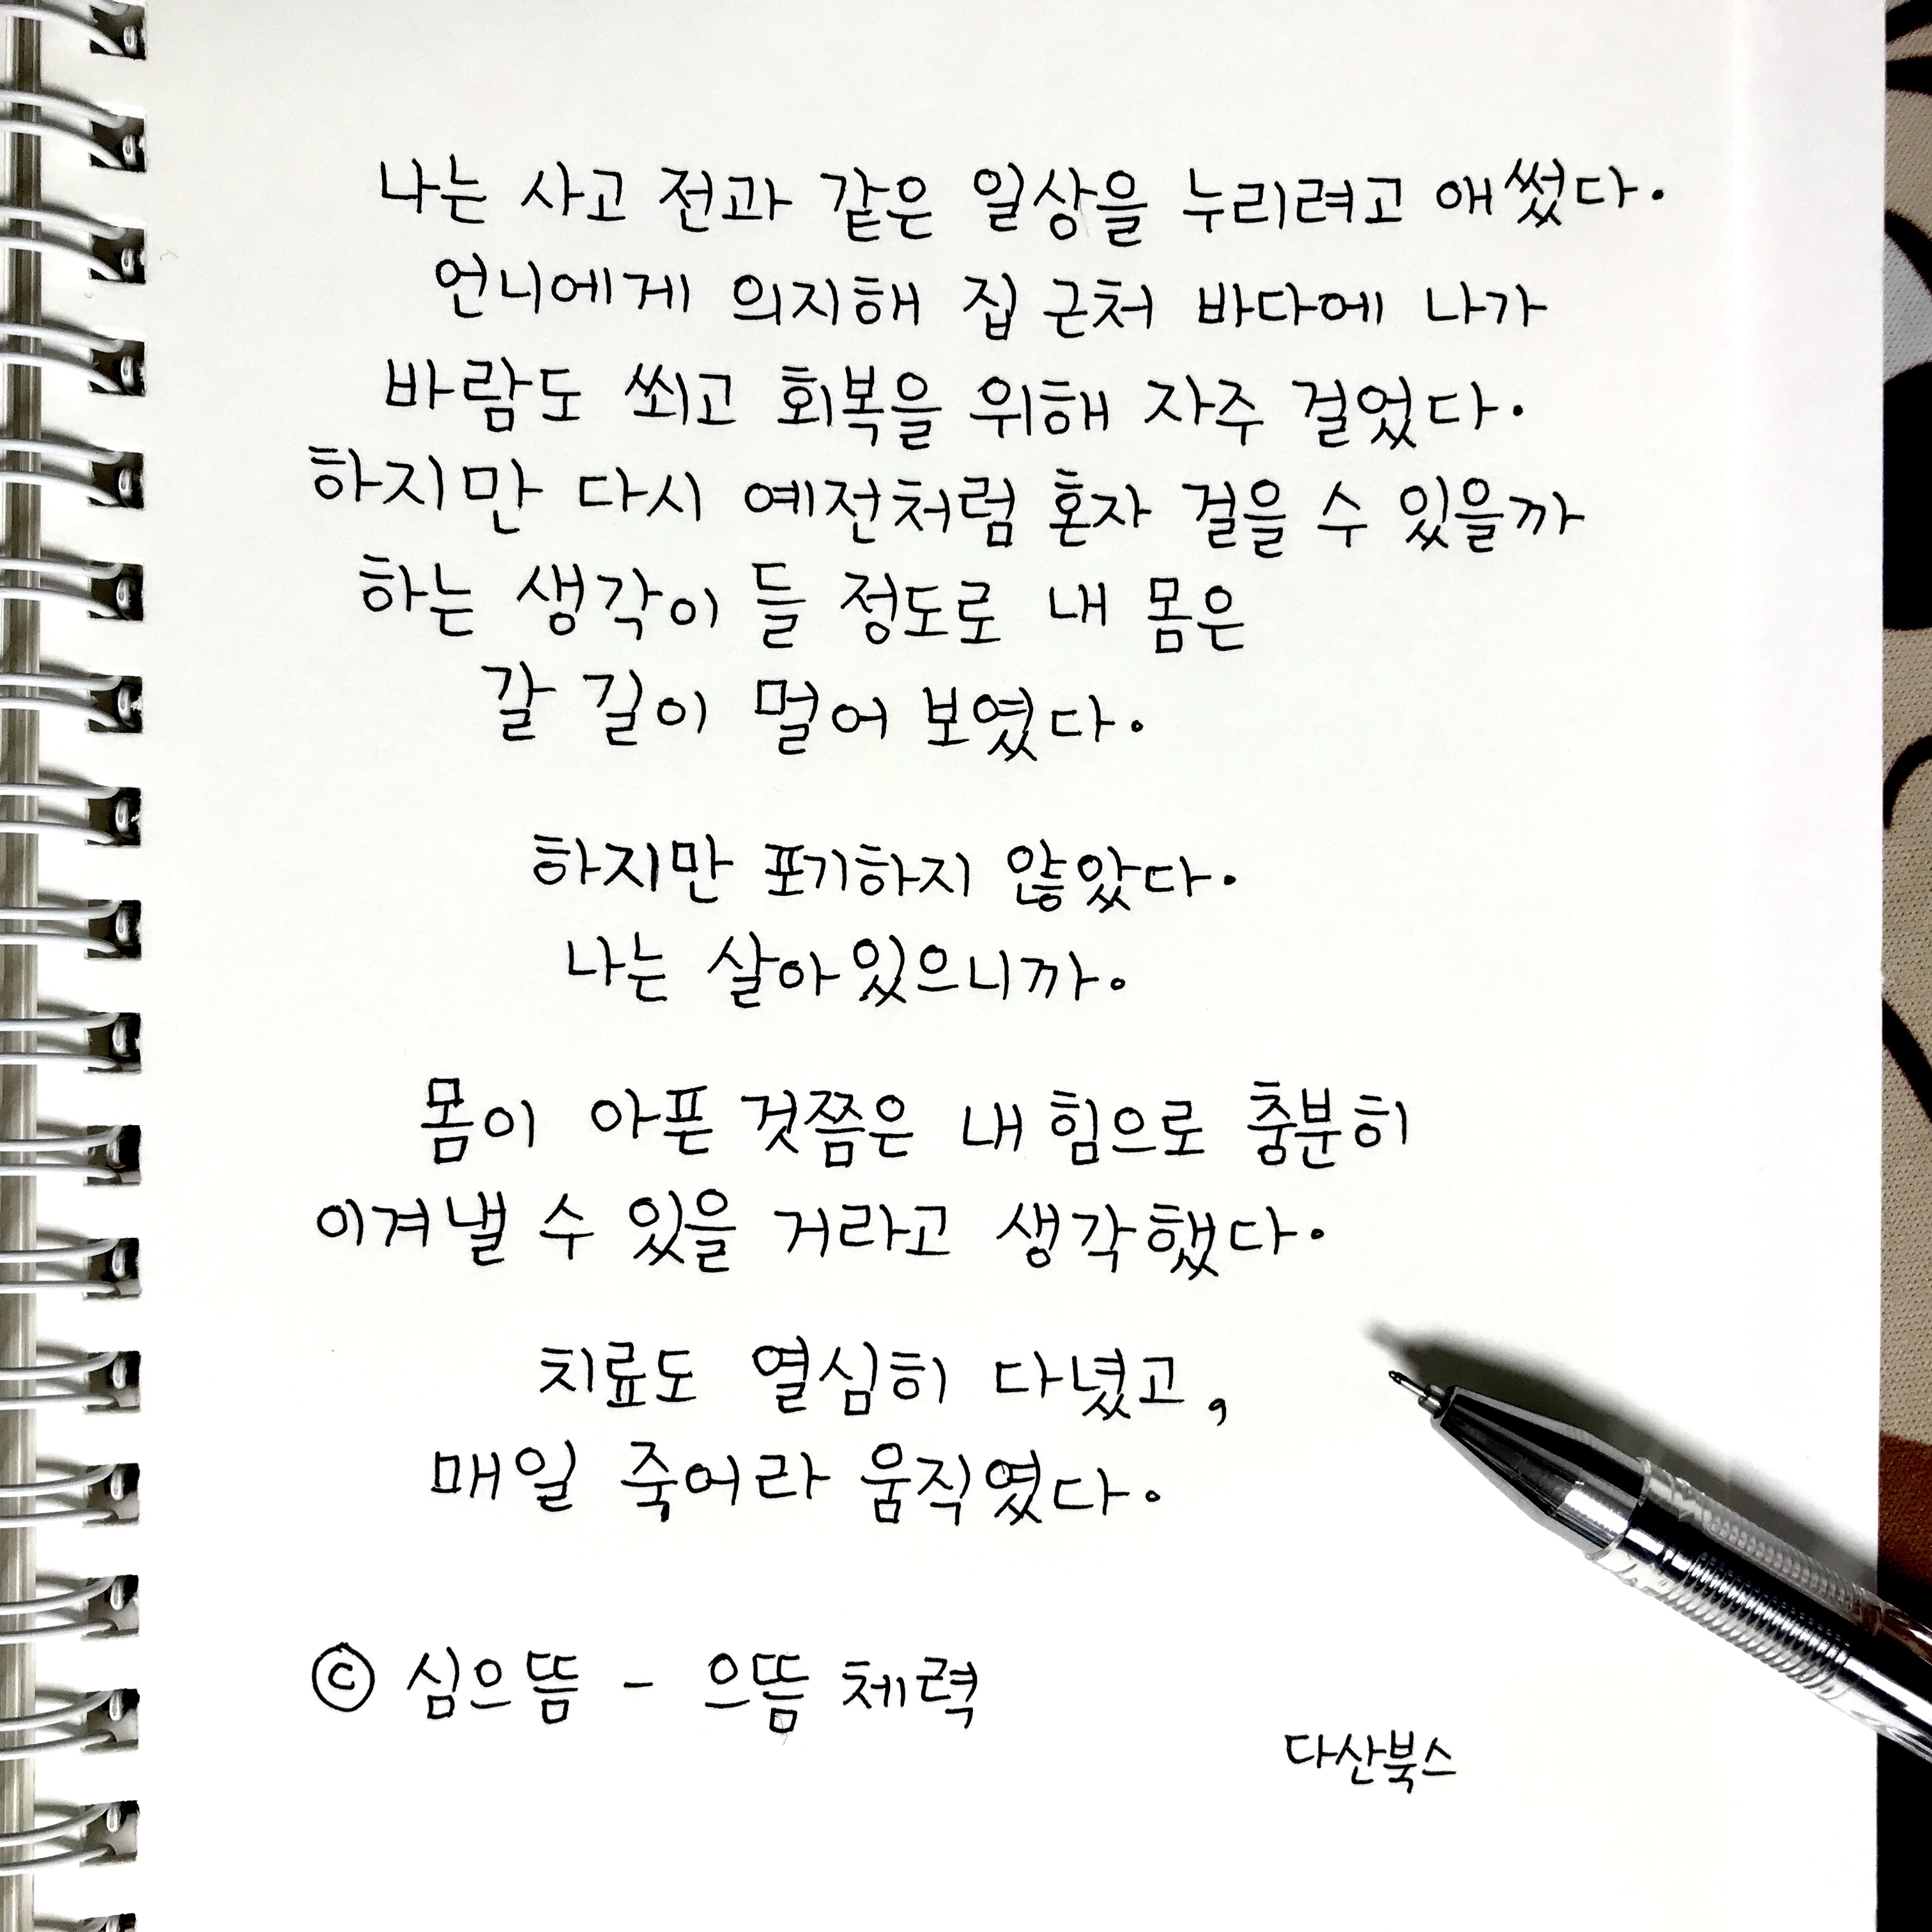 나는 사고 전과 같은 일상을 누리려고 애썼다.
언니에게 의지해 집 근처 바다에 나가
바람도 쐬고 회복을 위해 자주 걸었다.
하지만 다시 예전처럼 혼자 걸을 수 있을까
하는 생각이 들 정도로 내 몸은
갈 길이 멀어 보였다.
하지만 포기하지 않았다.
나는 살아있으니까.
몸이 아픈 것쯤은 내 힘으로 충분히
이겨낼 수 있을 거라고 생각했다.
치료도 열심히 다녔고,
매일 죽어라 움직였다.
© 심으뜸 - 으뜸 체력
다산북스